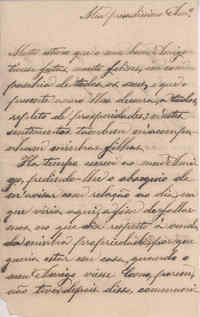 Meu presadissimo Snr.
Muito estimo que o meu bom Amigo
tivesse festas, muito felizes, em com-
panhia de todos os seus, e que o
presente anno lhes decorra, a todos,
repleto de prosperidades; n'estes
sentimentos tambem me acompa-
nham minhas filhas.
Ha tempo escrevi ao meu Ami-
go, pedindo-lhe o obsequio de
me avisar com relação ao dia, em
que viria aqui, afim de fallar-
mos, no que diz respeito á venda
da minha propriedade, por que
queria estar em casa, quando o
meu Amigo viesse. Como, porem,
não tive, depois disso, communi-